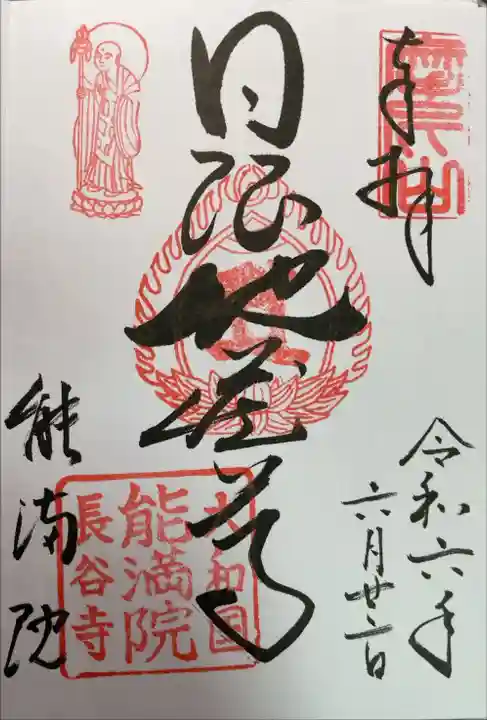 奉拝
令和六年
六月廿二日
日限地蔵尊
能満院
大和国
能満院
長谷寺